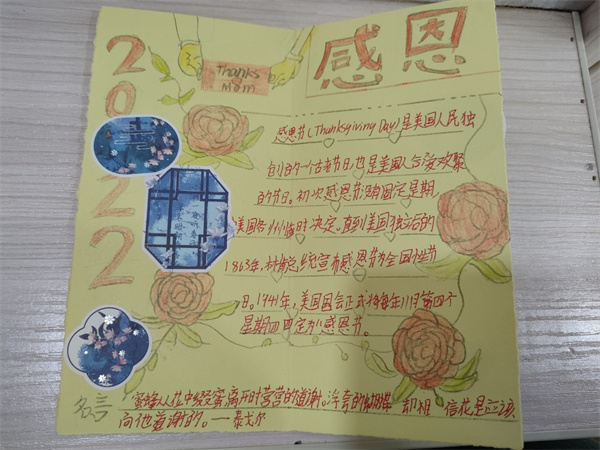 2022
Thanks
Mom
感恩
感恩节(Thanksgiving Day)是美国人民独
创的一个古老节日,也是美国人合家欢聚
的节日。初次感恩节没有固定是期,
美国各州临时决定。直到美国独立后的
1863年,林肯总统宣布感恩节为全国性节
日。1941年,美国国会正式将每年11月第四个
星期四定为"感恩节。
名言
蜜蜂从花中啜蜜,离开时营营的道谢。浮夸的蝴蝶 却相 信花是应该
向他道谢的。——泰戈尔